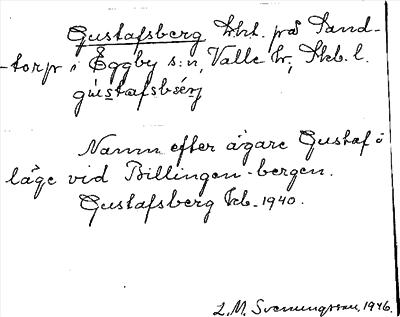 Gustafsberg lht. på Sand-
-torp i Eggby s:n, Valle hr, Skb. l.
gústafsbærj
Namn efter ägare Gustaf o
läge vid Billingen-bergen.
Gustafsberg Jrb. 1940.
L. M. Svenungsson, 1946.